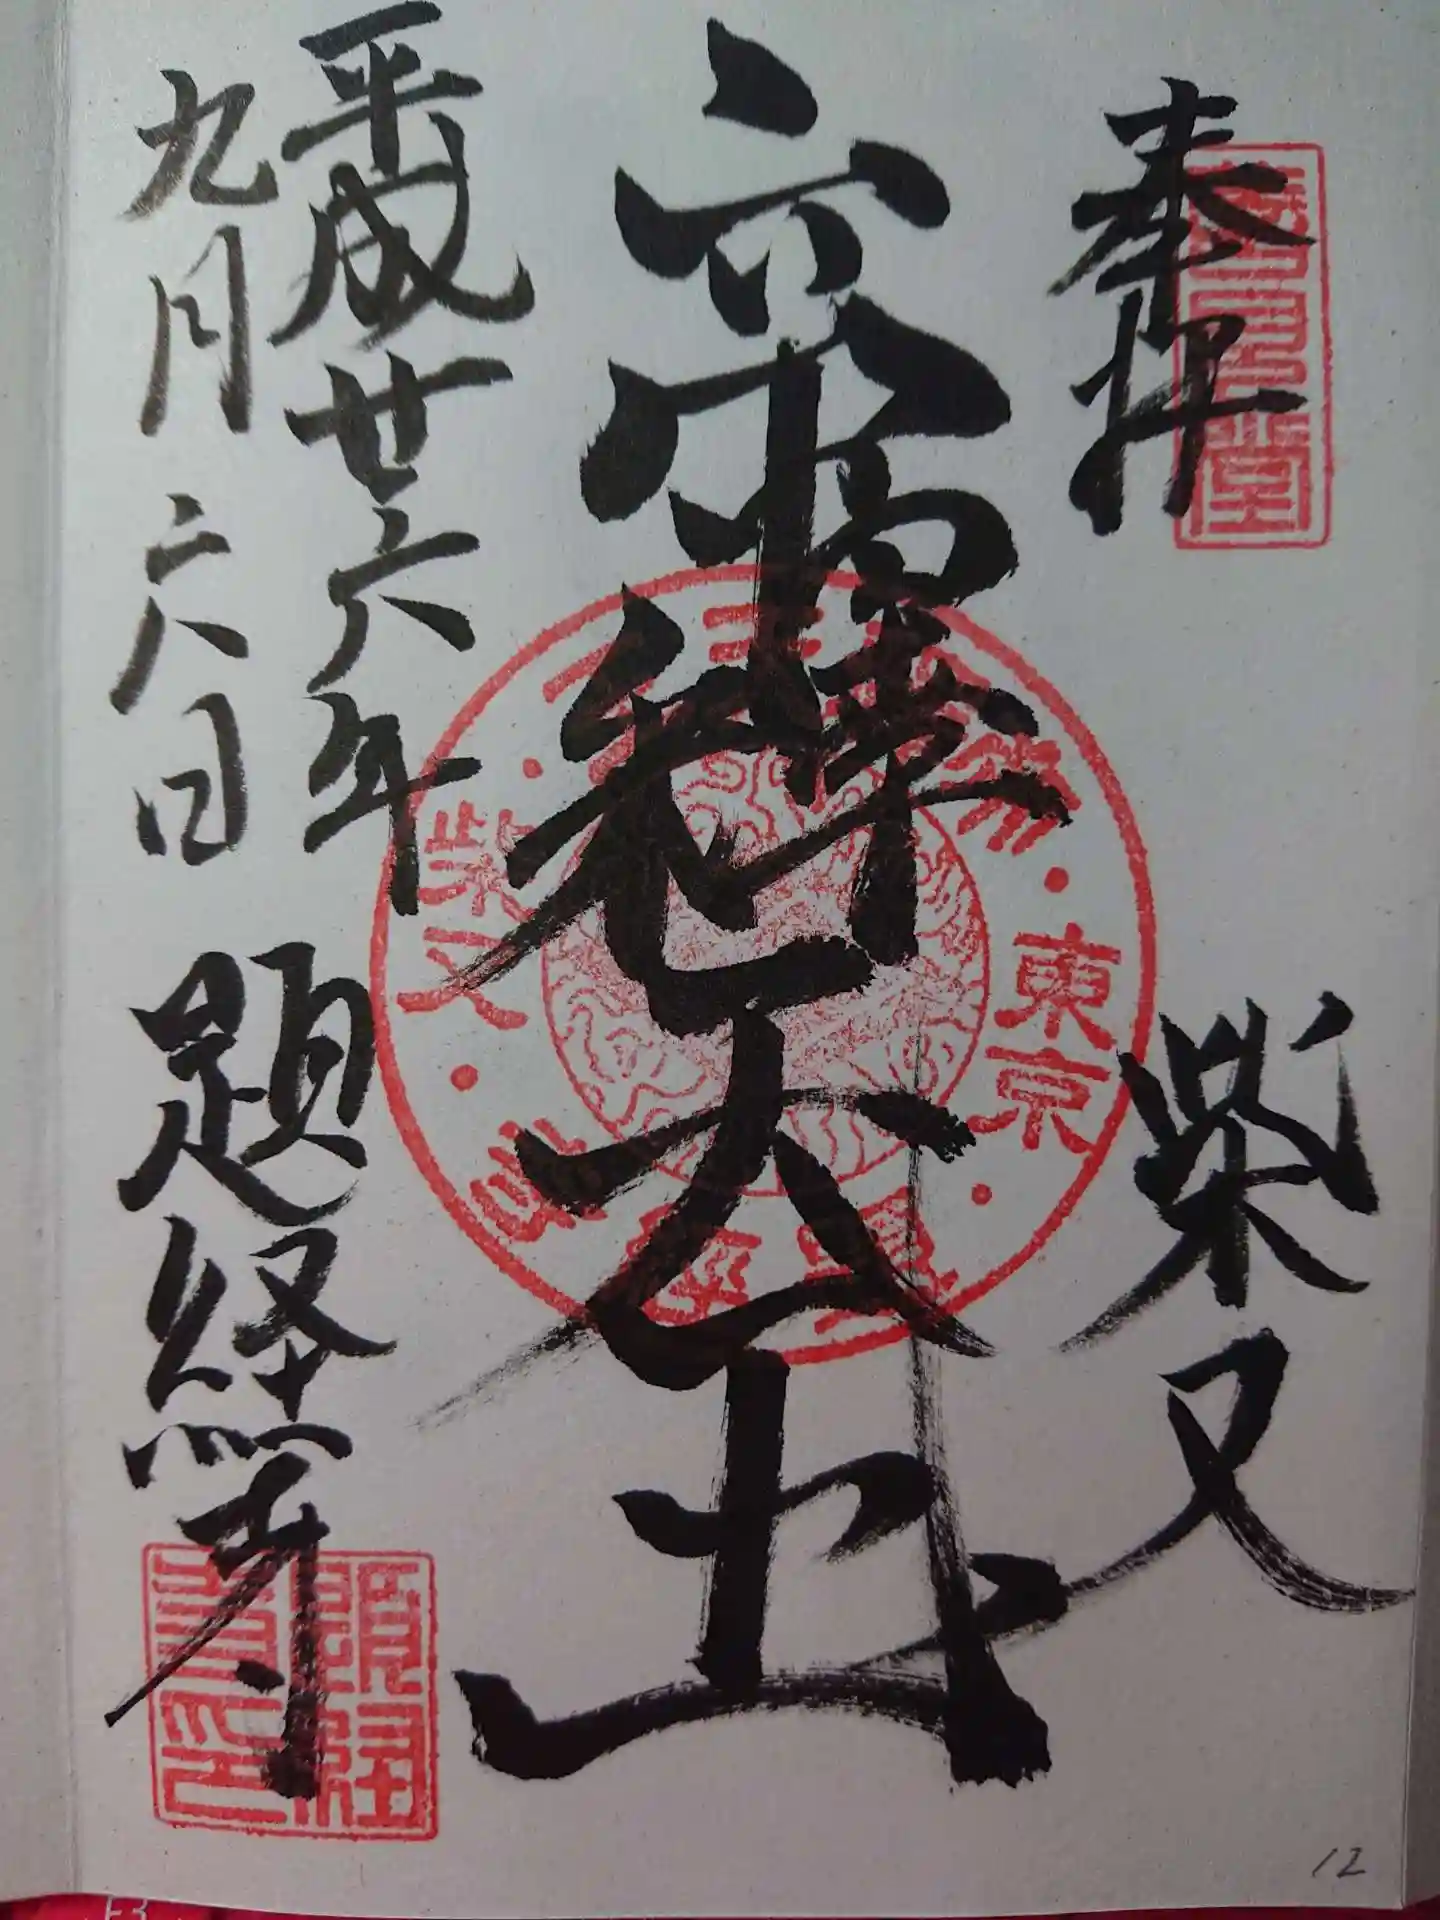 奉拝
柴又
帝釋天王
平成廿六年
九月六日
題経寺
東京
柴又
12